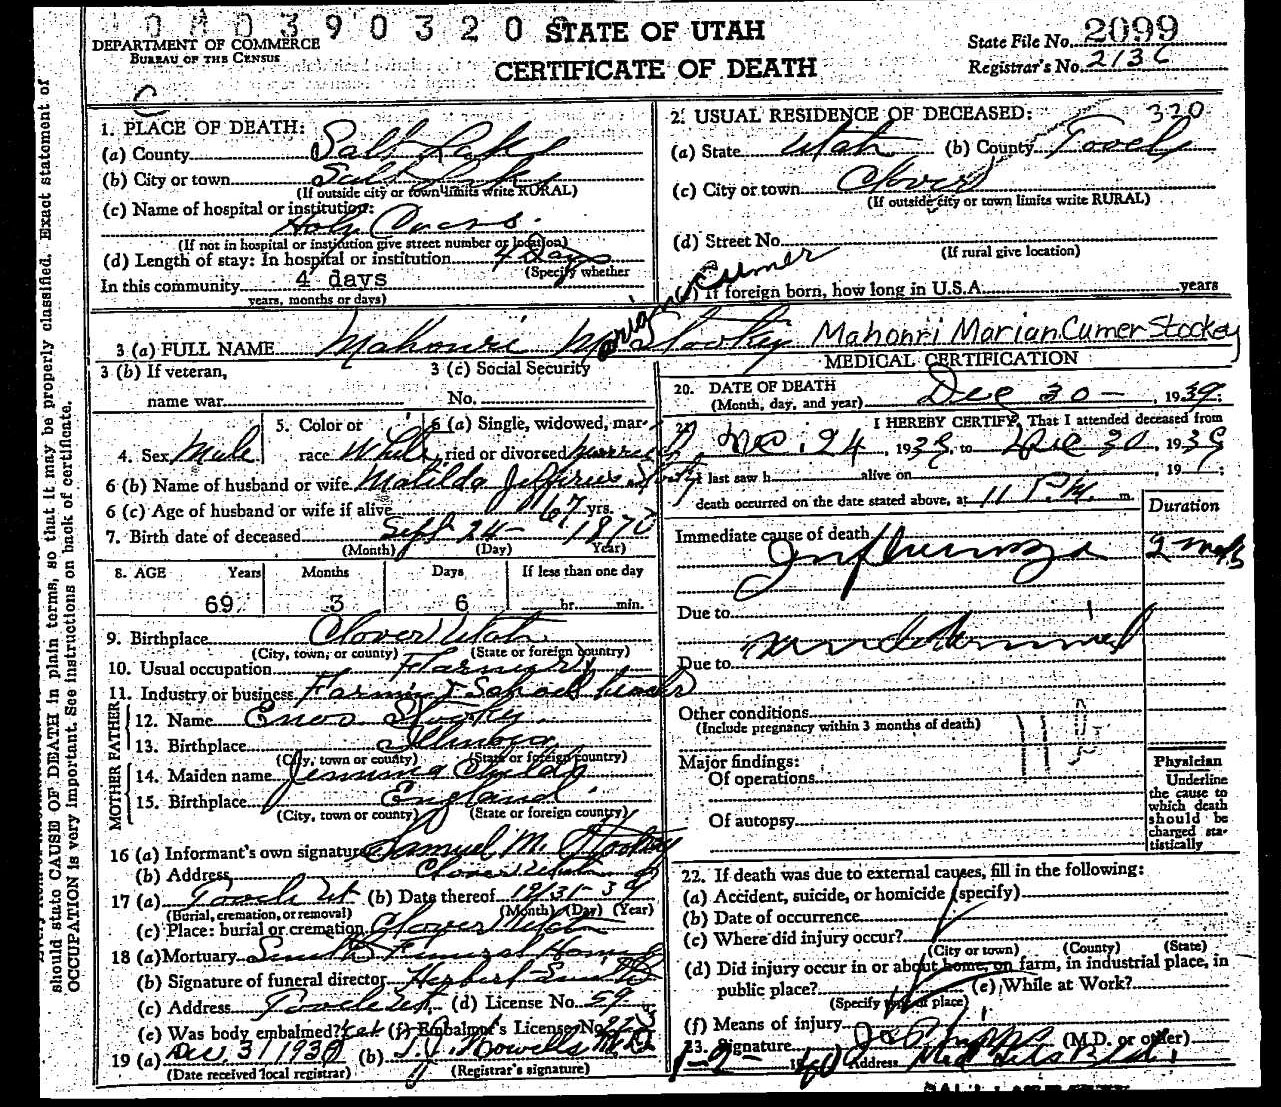 STATE OF UTAH
CERTIFICATE OF DEATH
DEPARTMENT OF COMMERCE
BUREAU OF THE CENSUS
State File No. 2099
Registrar's No. 213C
C
1. PLACE OF DEATH:
(a) County Salt Lake
(b) City or town Salt Lake
(If outside city or town limits write RURAL)
(c) Name of hospital or institution:
Holy Cross.
(If not in hospital or institution give street number or location)
(d) Length of stay: In hospital or institution 4 Days
(Specify whether
In this community 4 days
years, months or days)
2. USUAL RESIDENCE OF DECEASED: 320
(a) State Utah (b) County Tooele
(c) City or town Clover
(If outside city or town limits write RURAL)
(d) Street No.
(If rural give location)
) If foreign born, how long in U.S.A. years
Cumer
3 (a) FULL NAME Mahonri M Stookey Mahonri Marian Cumer Stookey
3 (b) If veteran,
name war
3 (c) Social Security
No.
4. Sex Male
5. Color or
race White
6 (a) Single, widowed, mar-
ried or divorced Married
6 (b) Name of husband or wife Matilda
6 (c) Age of husband or wife if alive 67 yrs.
7. Birth date of deceased Sept 24 - 1870
(Month) (Day) Year)
8. AGE Years Months Days If less than one day
69 3 6 hr. min.
9. Birthplace Clover Utah
(City, town, or county) (State or foreign country)
10. Usual occupation
11. Industry or business Farming & School teacher
FATHER
12. Name Enos Stookey
13. Birthplace Illinois
(City, town or county) (State or foreign country)
MOTHER
14. Maiden name Jemima Childs
15. Birthplace England
(City, town or county) (State or foreign country)
16 (a) Informant's own signature Samuel M. Stookey
(b) Address Clover Utah
17 (a) Tooele Ut (b) Date thereof 12/31-39
(Burial, cremation, or removal) (Month) (Day) (Year)
(c) Place: burial or cremation Clover Utah
18 (a) Mortuary Smith Funeral Home
(b) Signature of funeral director Herbert Smith
(c) Address Tooele Ut, (d) License No. 59
(e) Was body embalmed? (f) Embalmer's License No.
19 (a) Dec 31 1939 (b)
(Date received local registrar) (Registrar's signature)
MEDICAL CERTIFICATION
20. DATE OF DEATH
(Month, day, and year) Dec 30 - , 1939;
21. I HEREBY CERTIFY, That I attended deceased from
Dec. 24, 1939, to Dec 30, 1939
I last saw h alive on , 19 ;
death occurred on the date stated above, at 11 P.M. m.
Duration
Immediate cause of death
Influenza
Due to
undetermined
Due to
Other conditions
(Include pregnancy within 3 months of death)
Major findings:
Of operations
Of autopsy
Physician
Underline
the cause to
which death
should be
charged sta-
tistically
22. If death was due to external causes, fill in the following:
(a) Accident, suicide, or homicide (specify)
(b) Date of occurrence
(c) Where did injury occur?
(City or town) (County) (State)
(d) Did injury occur in or about home, on farm, in industrial place, in
public place? (e) While at Work?
(Specify type of place)
(f) Means of injury
23. Signature (M.D. or other)
1-2- 1940 Address
should state CAUSE OF DEATH in plain terms, so that it may be properly classified. Exact statement of
OCCUPATION is very important. See instructions on back of certificate.